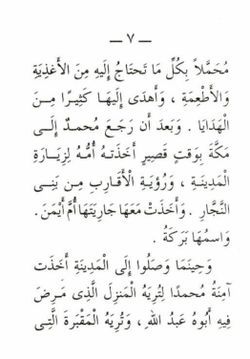 — ٧ —
مُحَمَّلاً بِكُلِّ مَا تَحتَاجُ إِلَيهِ مِنَ الأَغذِيَةِ
وَالأَطْعِمَةِ ، وَأَهدَى إِلَيهَا كَثِيرًا مِـنَ
الهَدَايَا . وَبَعدَ أَن رَجَـعَ مُحمـدٌ إِلَـى
مَكَّةَ بِوَقتٍ قَصِيرٍ أَخَذَتهُ أُمُّـهُ لِزِيَـارَةِ
المَدِينَةِ ، وَرُؤيَـةِ الأَقَـارِبِ مِـن بَنِـى
النَّجَّارِ . وَأَخَذَتْ مَعَهَا جَارِيَتَهَا أُمَّ أَيْمَنَ .
وَاسمُهَا بَرَكَةُ .
وَحِينَمَا وَصَلُوا إِلَى المَدِينَةِ أَخَذَت
آمِنَةُ مُحمدًا لِتُرِيَهُ المَنزِلَ الَّذِى مَـرِضَ
فِيهِ أَبُوهُ عَبدُ اللهِ ، وَتُرِيَهُ المَقْبَرَةَ الَّتِـى